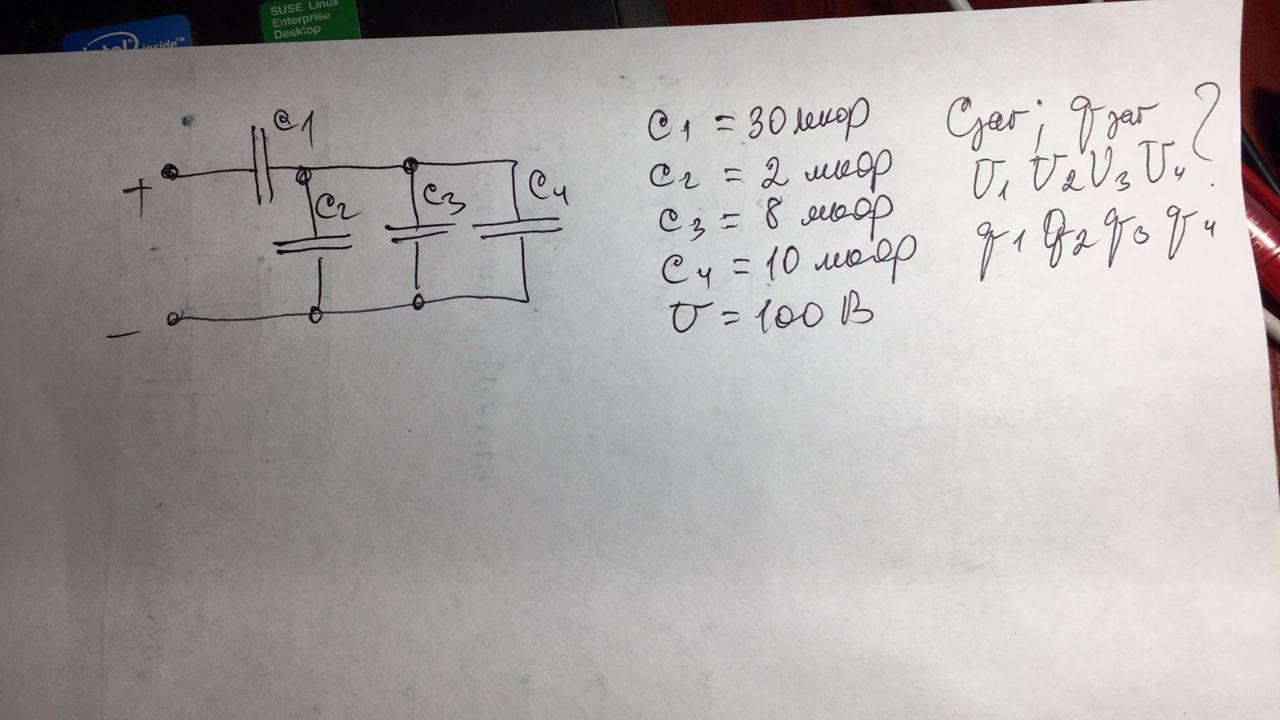 intel inside™
SUSE Linux
Enterprise
Desktop
C1
+
C2
C3
C4
−
C1 = 30 мкф
C2 = 2 мкф
C3 = 8 мкф
C4 = 10 мкф
U = 100 В
Cзаг; qзаг ?
U1 U2 U3 U4
q1 q2 q3 q4